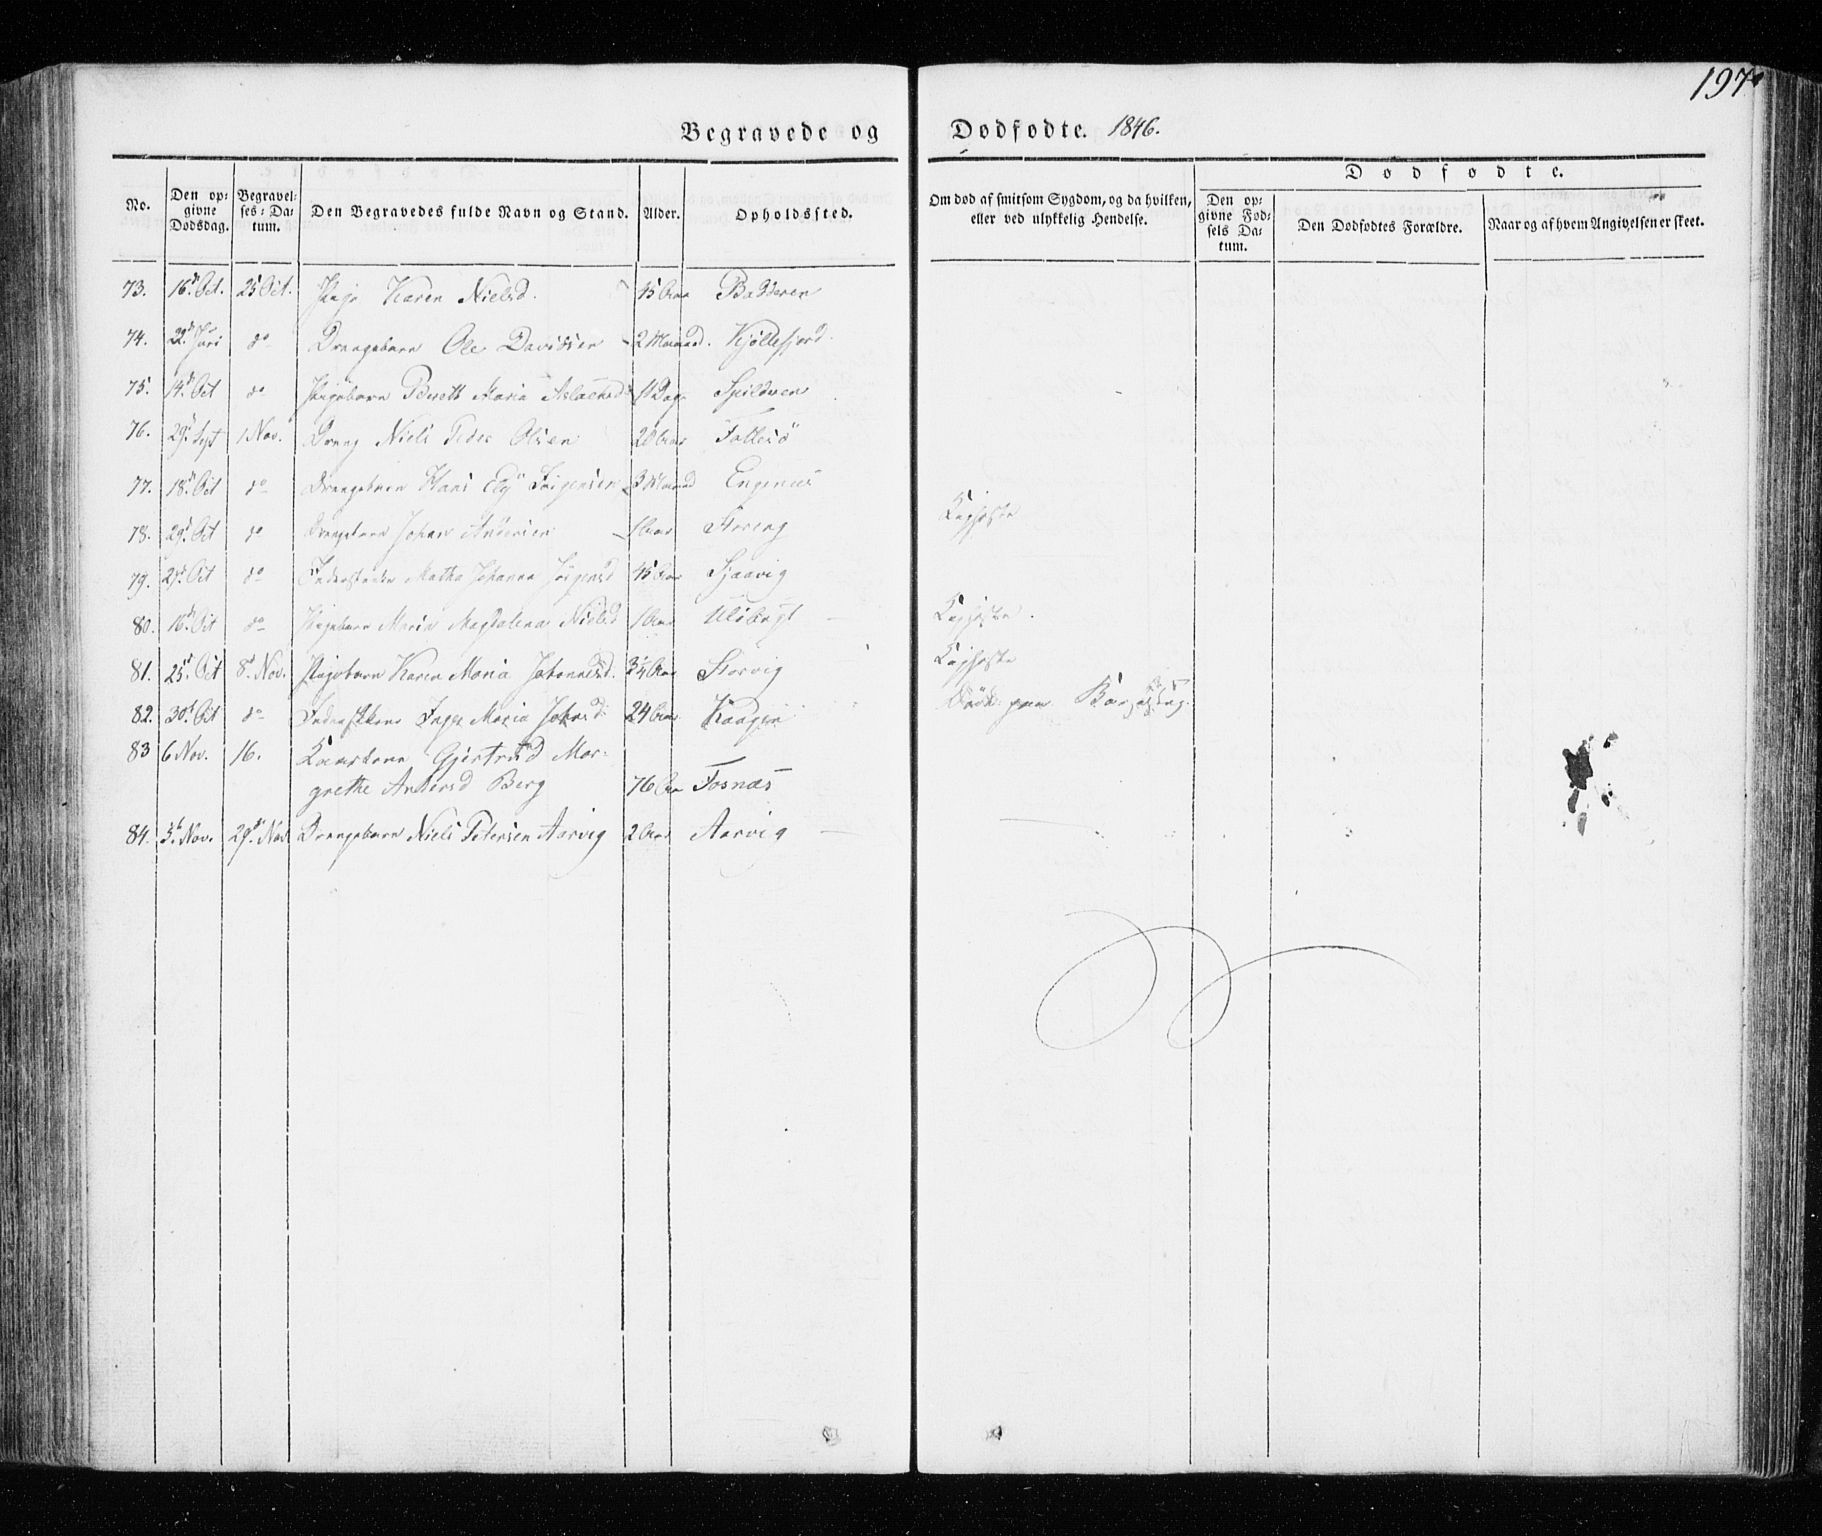 197
Begravede og Dødfødte. 1846.
No.
Den op-
givne
Dødsdag.
Begravel-
ses-Da-
tum.
Den Begravedes fulde Navn og Stand.
Alder.
Opholdssted.
Om død af smitsom Sygdom, og da hvilken,
eller ved ulykkelig Hendelse.
Dødfødte.
Den op-
givne Fød-
sels Da-
tum.
Den Dødfødtes Forældre.
Naar og af hvem Angivelsen er skeet.
73. 16 Oct. 25 Oct. Pige Karen Nielsd. 45 Aar Badderen
74. 22 Juni do Drengebarn Ole Davidsen 2 Maaned. Kjøllefjord.
75. 14 Oct do Pigebarn Berett Maria Aslachsd 11 Dage Spildren
76. 29 Sept 1 Nov. Dreng Niels Peder Olsen 20 Aar Follesø
77. 18 Oct do Drengebarn Hans Jørgensen 3 Maaned Engenæs
78. 29 Oct do Drengebarn Johan Andersen 1 Aar Storeng Kighoste
79. 27 Oct do Matha Johanna Jørgensd 45 Aar
80. 16 Oct do Pigebarn Maria Magdalena Nielsd 1 Aar Ulsbugt Kighoste.
81. 25 Oct 8 Nov. Pigebarn Karen Maria Johannesd. 3/4 Aar Storvig Kighoste
82. 30 Oct do Inger Maria Johnsd 24 Aar Kaagen Død paa Barselseng.
83 6 Nov. 16. Gjertrud Mar-
grethe Andersd Berg 76 Aar Tosnæs
84. 3 Nov. 29 Nov Drengebarn Niels Petersen Aarvig 2 Aar Aarvig